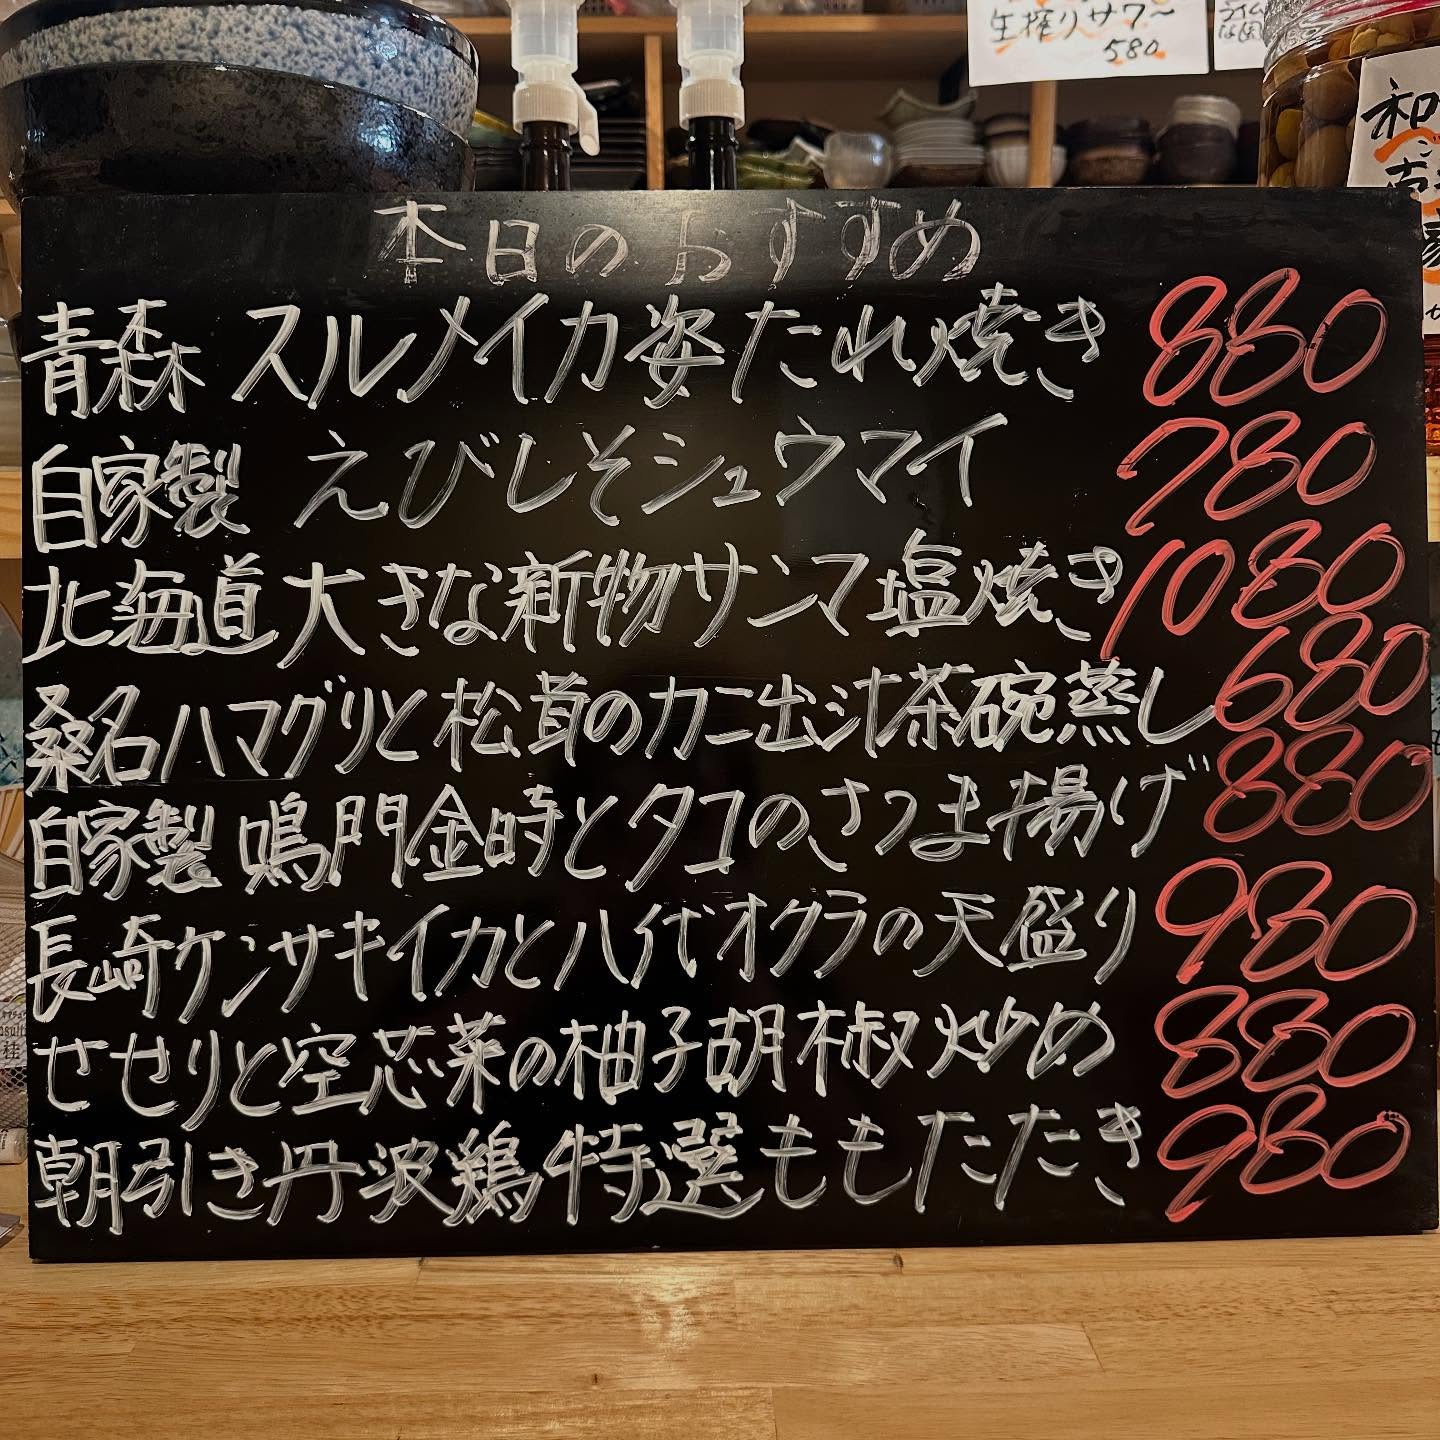 生搾りサワー
580
本日のおすすめ
青森 スルメイカ姿たれ焼き 880
自家製 えびしそシュウマイ 780
北海道大きな新物サンマ塩焼き 1080
桑名ハマグリと松茸のカニ出汁茶碗蒸し 680
自家製 鳴門金時とタコのさつま揚げ 880
長崎ケンサキイカと八代オクラの天盛り 980
せせりと空芯菜の柚子胡椒炒め 880
朝引き丹波鶏特選ももたたき 980